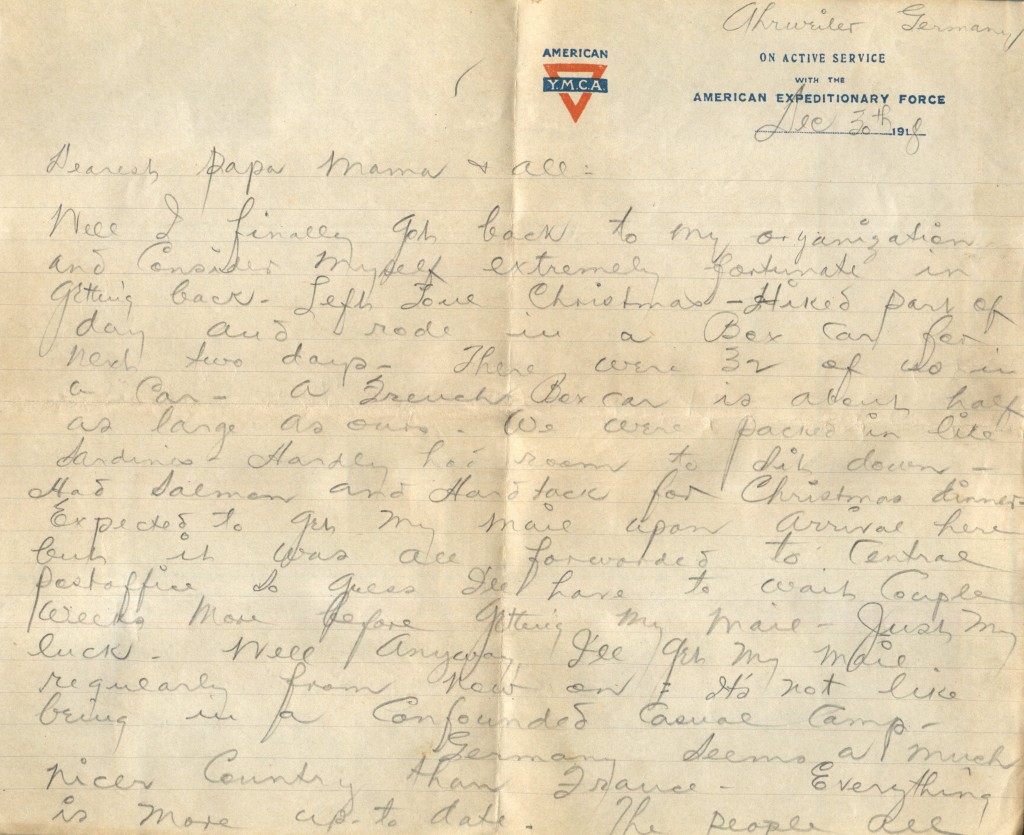 Ahrweiler Germany
AMERICAN
Y.M.C.A.
ON ACTIVE SERVICE
WITH THE
AMERICAN EXPEDITIONARY FORCE
Dec 30th 1918
Dearest Papa Mama & all:
Well I finally got back to my organization
and Consider Myself extremely fortunate in
Getting back - Left Toul Christmas - Hiked part of
day and rode in a Box Car for
next two days - There were 32 of us in
a Car - A French Box car is about half
as large as ours. We were packed in like
Sardines - Hardly had room to sit down -
Had Salmon and Hard tack for Christmas dinner -
Expected to get My Mail upon Arrival here
but it was all forwarded to Central
postoffice so guess I'll have to wait Couple
Weeks More before Getting My Mail - Just My
luck - Well Anyway, I'll get My Mail
regularly from Now on = It's not like
being in a Confounded Casual Camp -
Germany Seems a Much
Nicer Country than France - Everything
is More up-to date. The people all